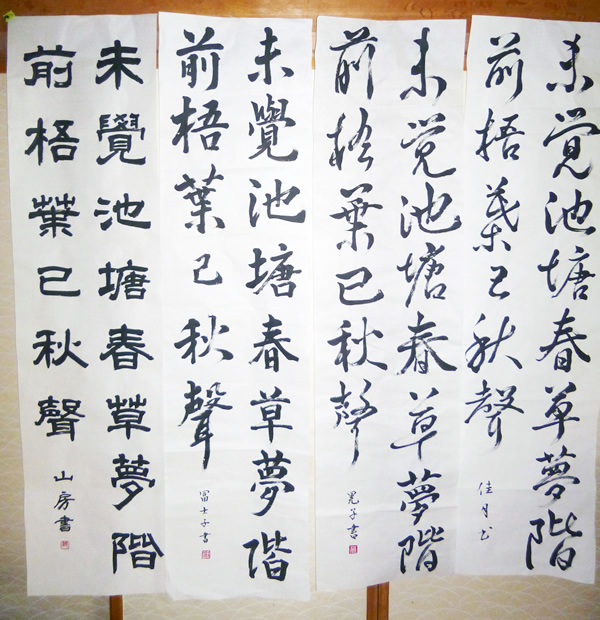 未覺池塘春草夢階
前梧葉已秋聲
佳月書
未覺池塘春草夢階
前梧葉已秋聲
晃子書
未覺池塘春草夢階
前梧葉已秋聲
冨士子書
未覺池塘春草夢階
前梧葉已秋聲
山房書